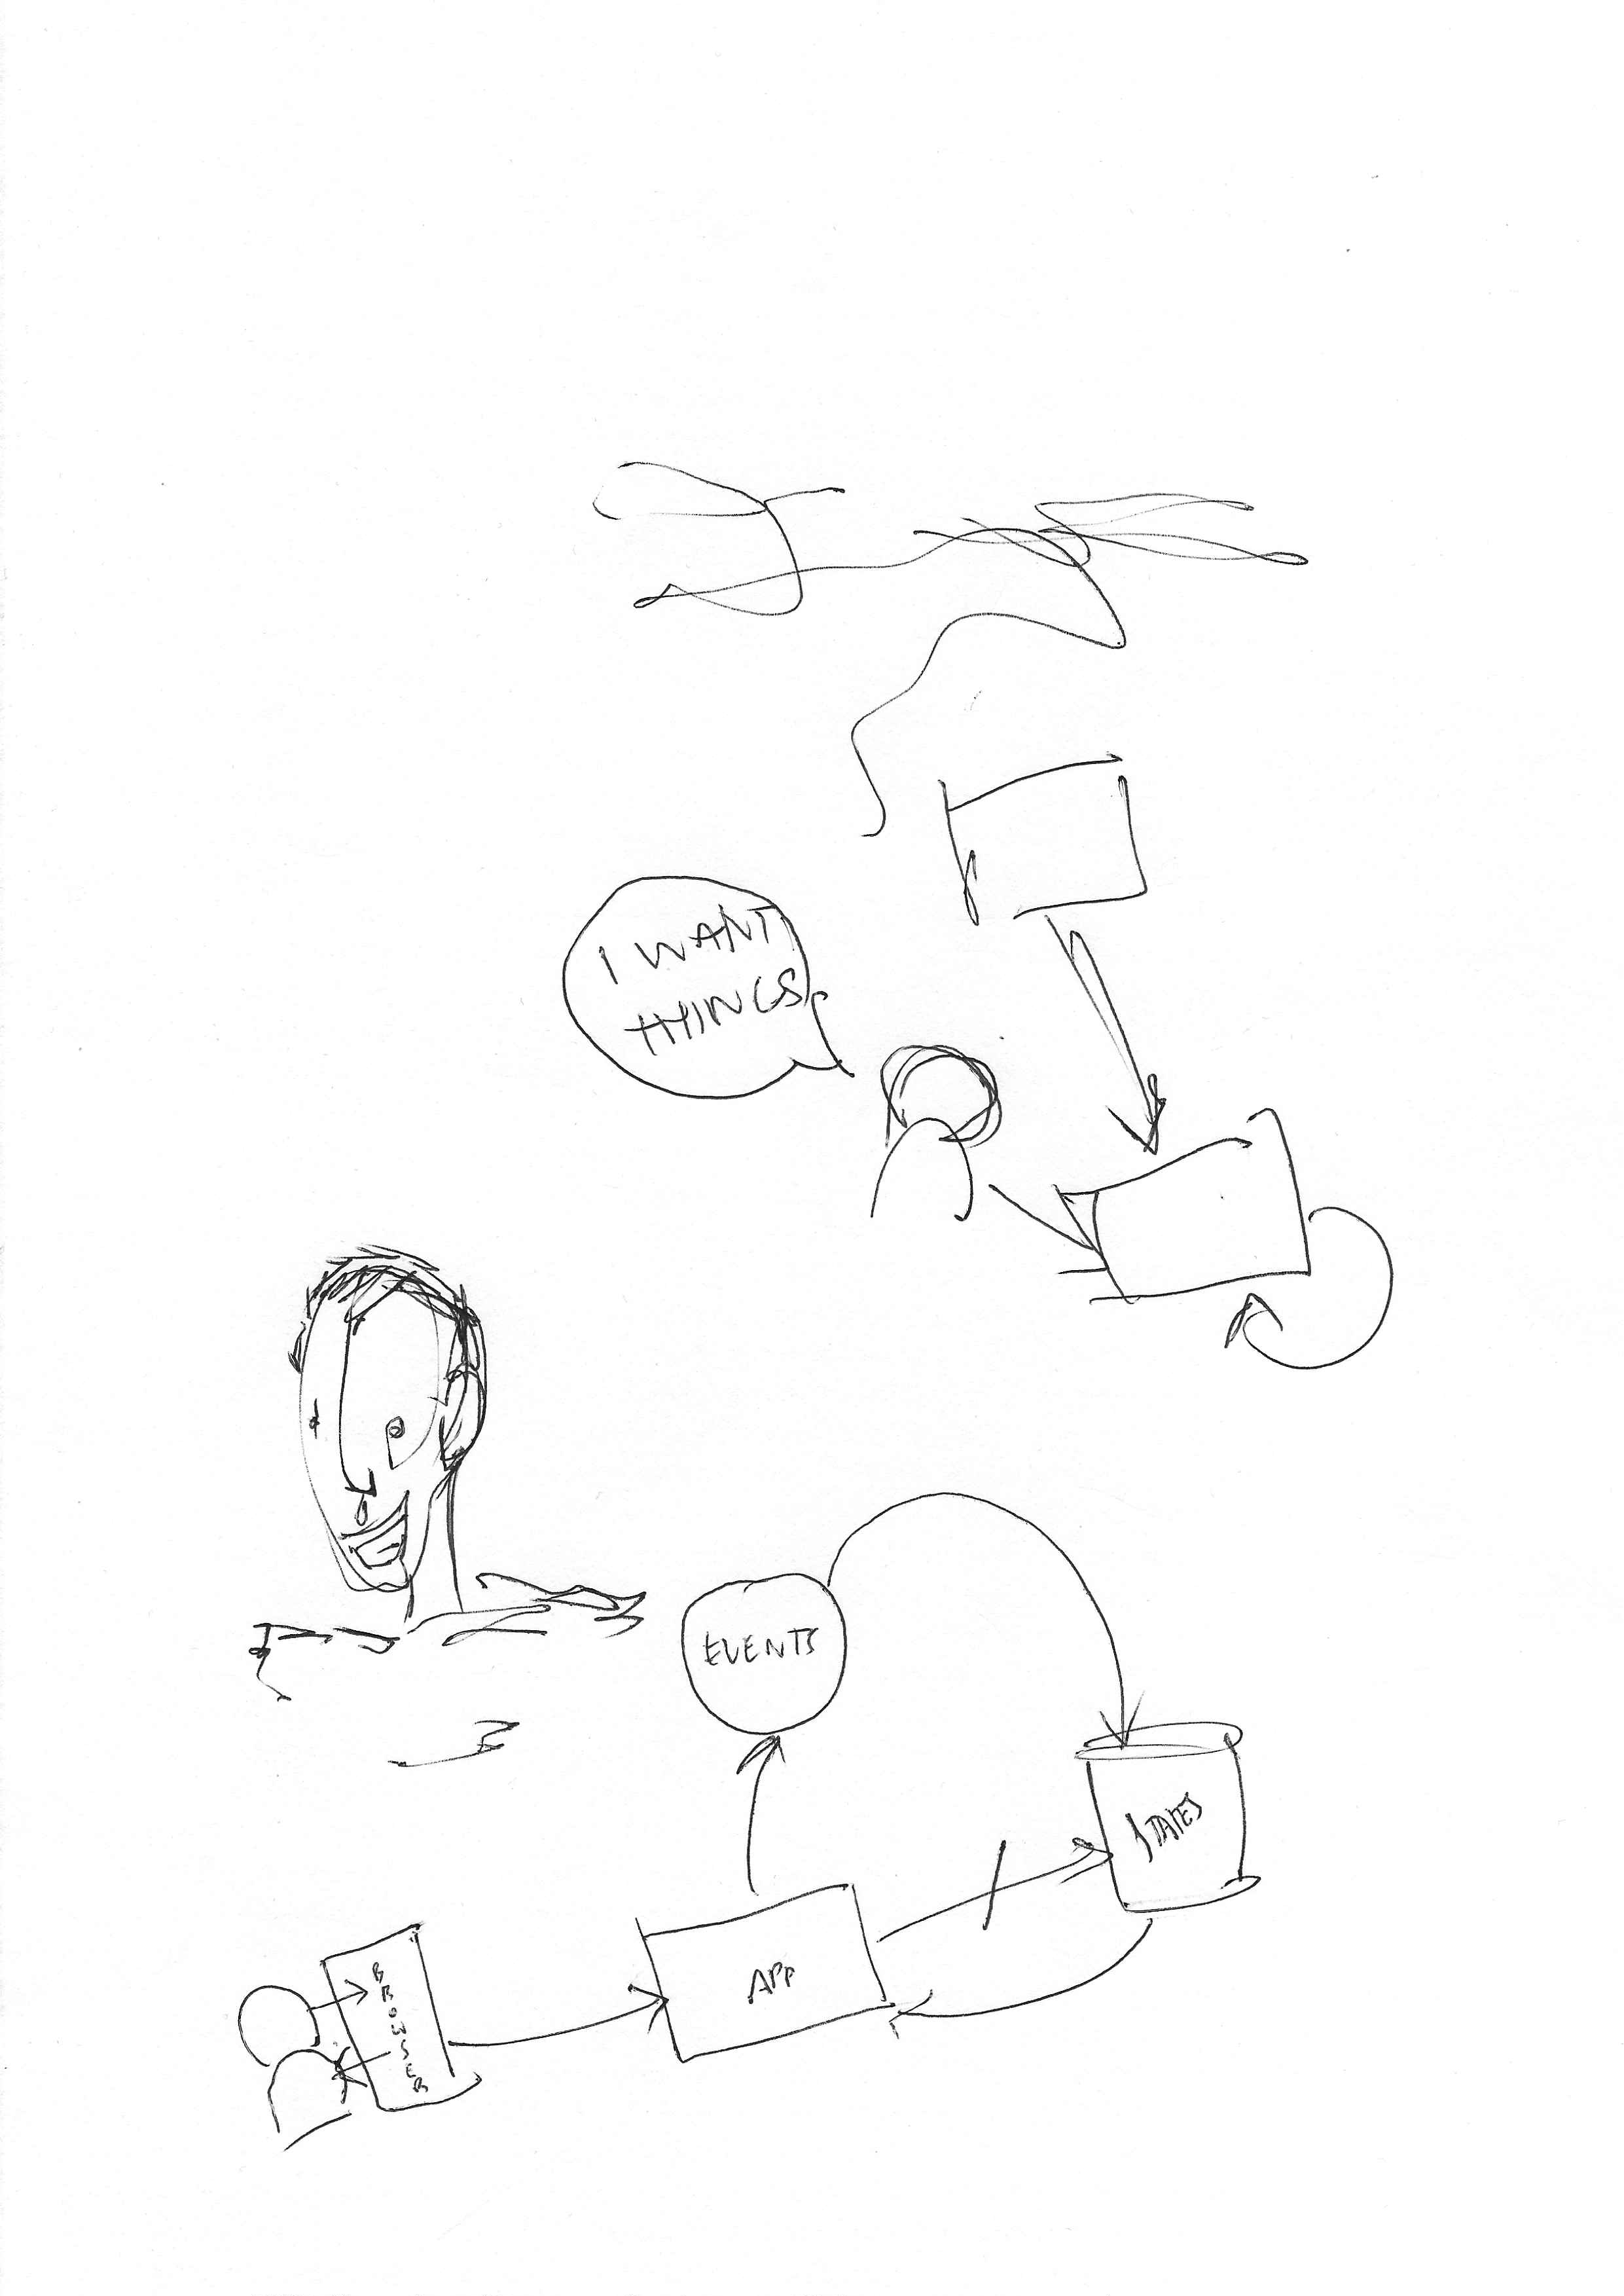 I WANT
THINGS
EVENTS
STATES
APP
BROWSER